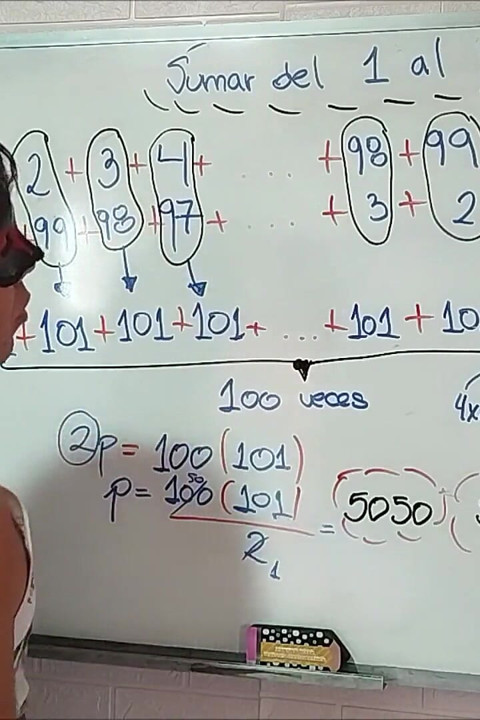 Sumar del 1 al
2 + 3 + 4 + .... + 98 + 99
+ 99 + 98 + 97 + .... + 3 + 2
+ 101 + 101 + 101 + ... + 101 + 10
100 veces
4x
2p = 100 (101)
50
p = 100 (101) = 5050
2 1